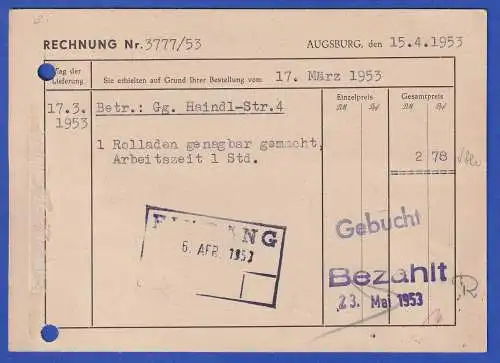 RECHNUNG Nr. 3777/53
AUGSBURG, den 15.4.1953
Tag der Lieferung
Sie erhielten auf Grund Ihrer Bestellung vom 17. März 1953
Einzelpreis
Gesamtpreis
17.3.
1953
Betr.: Gg. Haindl-Str.4
1 Rolladen gengbar gemacht,
Arbeitszeit 1 Std.
2 78
EINGANG
6. APR. 1953
Gebucht
Bezahlt
23. Mai 1953